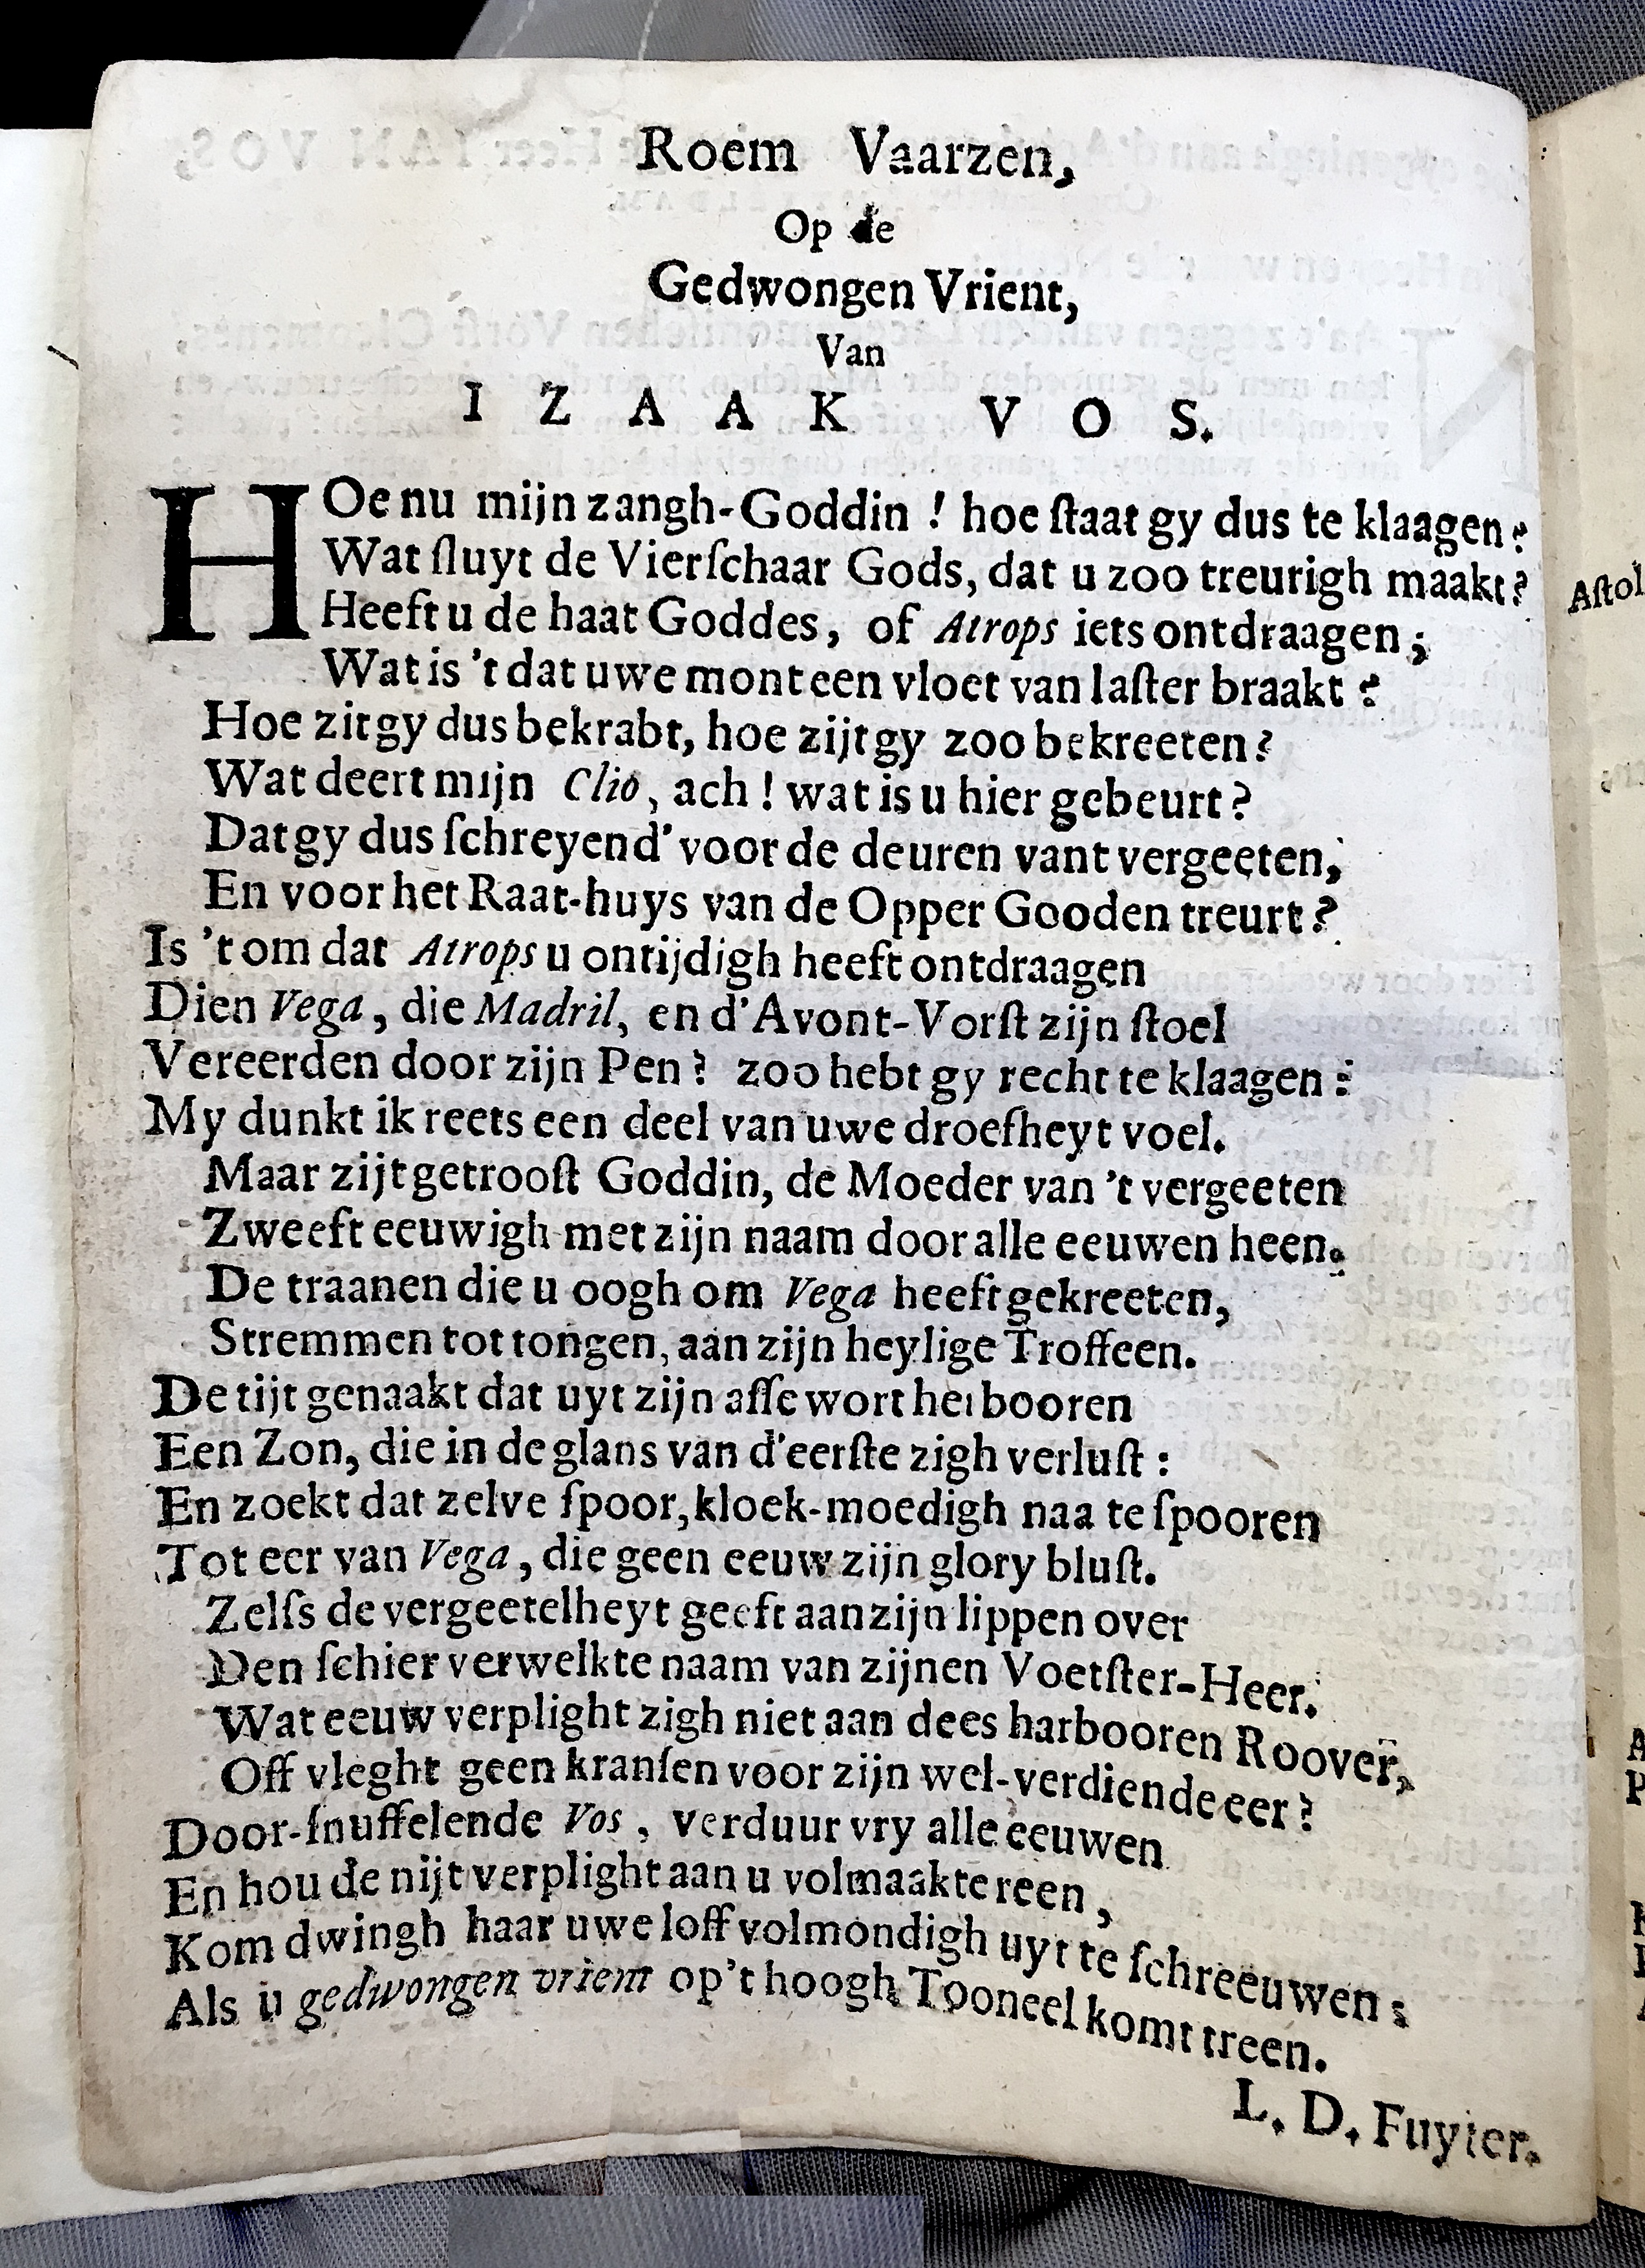 Roem Vaarzen,
Op de
Gedwongen Vrient,
Van
IZAAK VOS.
HOe nu mijn zangh-Goddin ! hoe ſtaat gy dus te klaagen?
Wat ſluyt de Vierſchaar Gods, dat u zoo treurigh maakt?
Heeft u de haat Goddes, of Atrops iets ontdraagen;
Wat is 't dat uwe mont een vloet van laſter braakt?
Hoe zit gy dus bekrabt, hoe zijt gy zoo bekreeten?
Wat deert mijn Clio, ach! wat is u hier gebeurt?
Dat gy dus ſchreyend' voor de deuren vant vergeeten,
En voor het Raat-huys van de Opper Gooden treurt?
Is 't om dat Atrops u ontijdigh heeft ontdraagen
Dien Vega, die Madril, en d'Avont-Vorſt zijn ſtoel
Vereerden door zijn Pen? zoo hebt gy recht te klaagen:
My dunkt ik reets een deel van uwe droefheyt voel.
Maar zijt getrooſt Goddin, de Moeder van 't vergeeten
Zweeft eeuwigh met zijn naam door alle eeuwen heen.
De traanen die u oogh om Vega heeft gekreeten,
Stremmen tot tongen, aan zijn heylige Troffeen.
De tijt genaakt dat uyt zijn aſſe wort herbooren
Een Zon, die in de glans van d'eerſte zigh verluſt:
En zoekt dat zelve ſpoor, kloek-moedigh naa te ſpooren
Tot eer van Vega, die geen eeuw zijn glory bluſt.
Zelfs de vergeetelheyt geeft aan zijn lippen over
Den ſchier verwelkte naam van zijnen Voetſter-Heer.
Wat eeuw verplight zigh niet aan dees harbooren Roover,
Off vleght geen kranſen voor zijn wel-verdiende eer?
Door-ſnuffelende Vos, verduur vry alle eeuwen
En hou de nijt verplight aan u volmaakte reen,
Kom dwingh haar uwe loff volmondigh uyt te ſchreeuwen:
Als u gedwongen vrient op't hoogh Tooneel komt treen.
L. D. Fuyter.
Aſtol